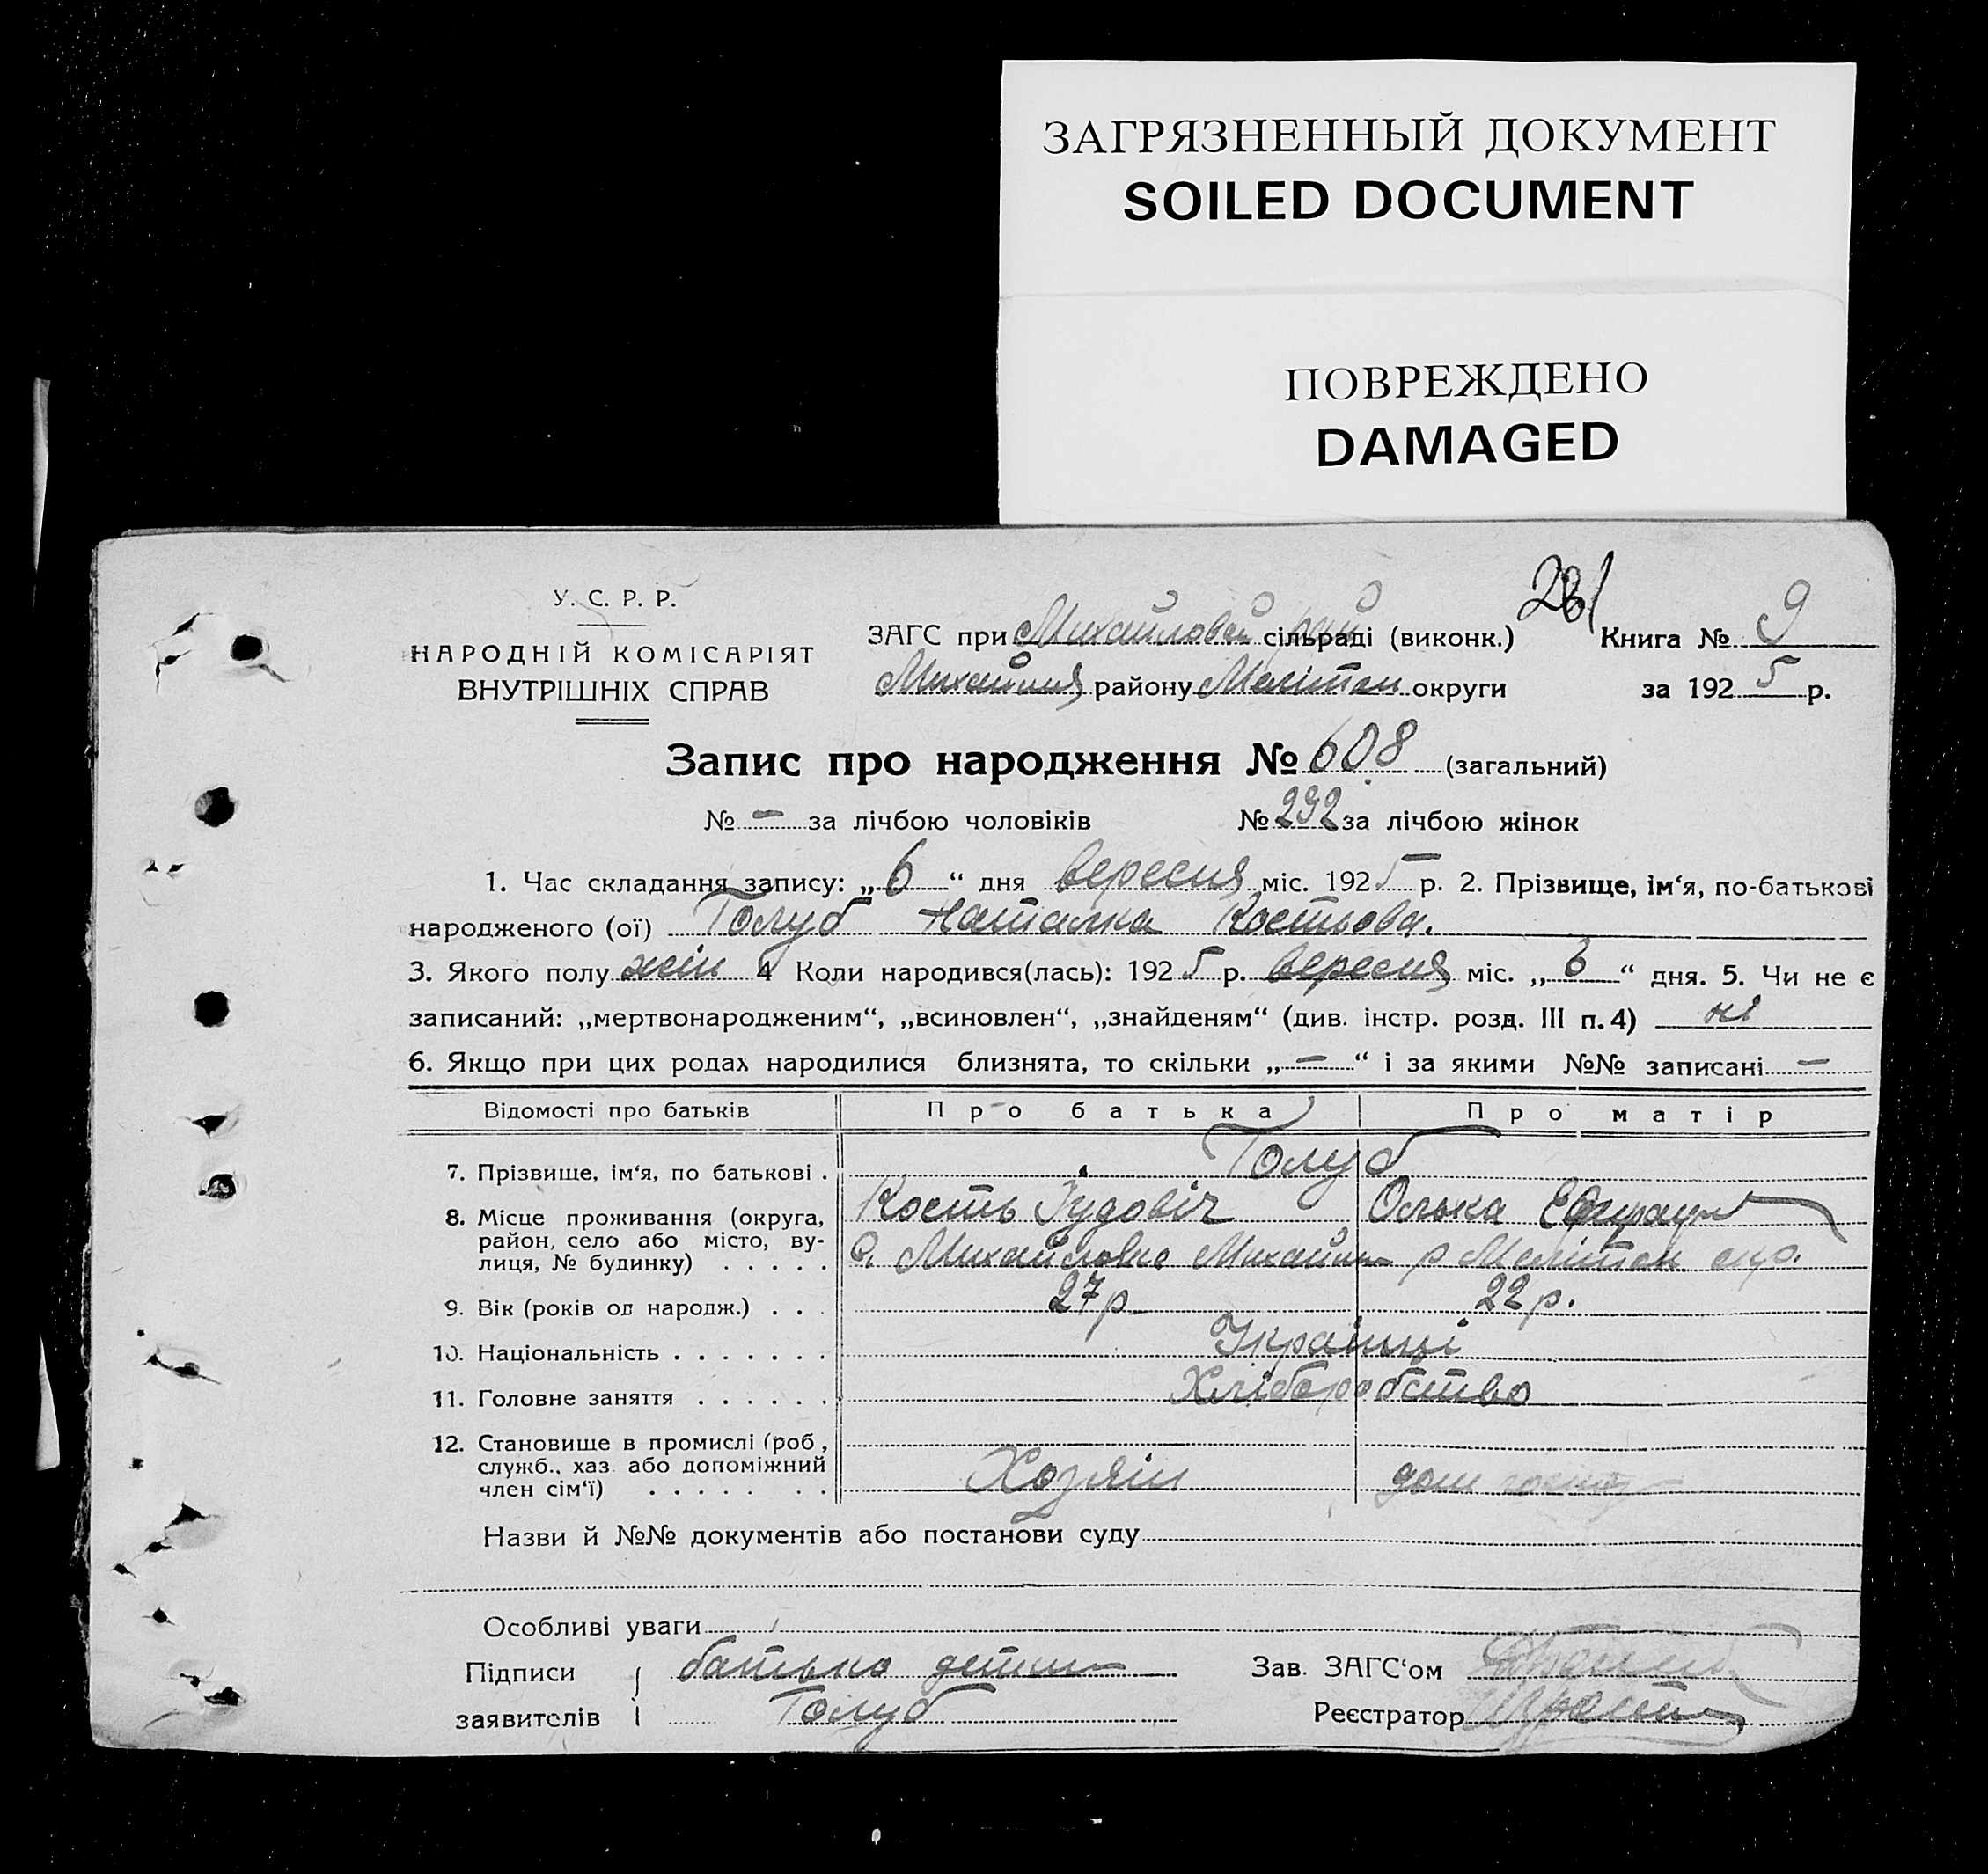 ЗАГРЯЗНЕННЫЙ ДОКУМЕНТ
SOILED DOCUMENT
ПОВРЕЖДЕНО
DAMAGED
У. С. Р. Р.
НАРОДНІЙ КОМІСАРІЯТ
ВНУТРІШНІХ СПРАВ
ЗАГС при Михайловск рай сільраді (виконк.)
Книга № 9
района Мелітоп округи
за 1925 р.
Запис про народження № 608 (загальний)
№ – за лічбою чоловіків № 292 за лічбою жінок
1. Час складання запису: „6“ дня вересня міс. 1925 р. 2. Прізвище, ім‘я, по-батькові
народженого (ої) Голуб Наталка Костьова.
3. Якого полу жін 4 Коли народився(лась): 1925 р. вересня міс. „6“ дня. 5. Чи не є
записаний: „мертвонародженим“, „всиновлен“, „знайденям“ (див. інстр. розд. III п. 4) ні
6. Якщо при цих родах народилися близнята, то скільки „–“ і за якими №№ записані –
Відомості про батьків Про батька Про матір
7. Прізвище, ім‘я, по батькові . Голуб
Кость Олька
8. Місце проживання (округа,
район, село або місто, ву-
лиця, № будинку) . . . . . с. Михайловка Михайл р Мелітоп окр.
9. Вік (років од народж.) . . . 27 р 22 р.
10. Національність . . . . . . . Українці
11. Головне заняття . . . . . . Хліборобство
12. Становище в промислі (роб,
служб., хаз. або допоміжний
член сім‘ї) . . . . . . . Хозяін дом
Назви й №№ документів або постанови суду
Особливі уваги
Підписи батько
заявителів Голуб
Зав. ЗАГС‘ом
Реєстратор